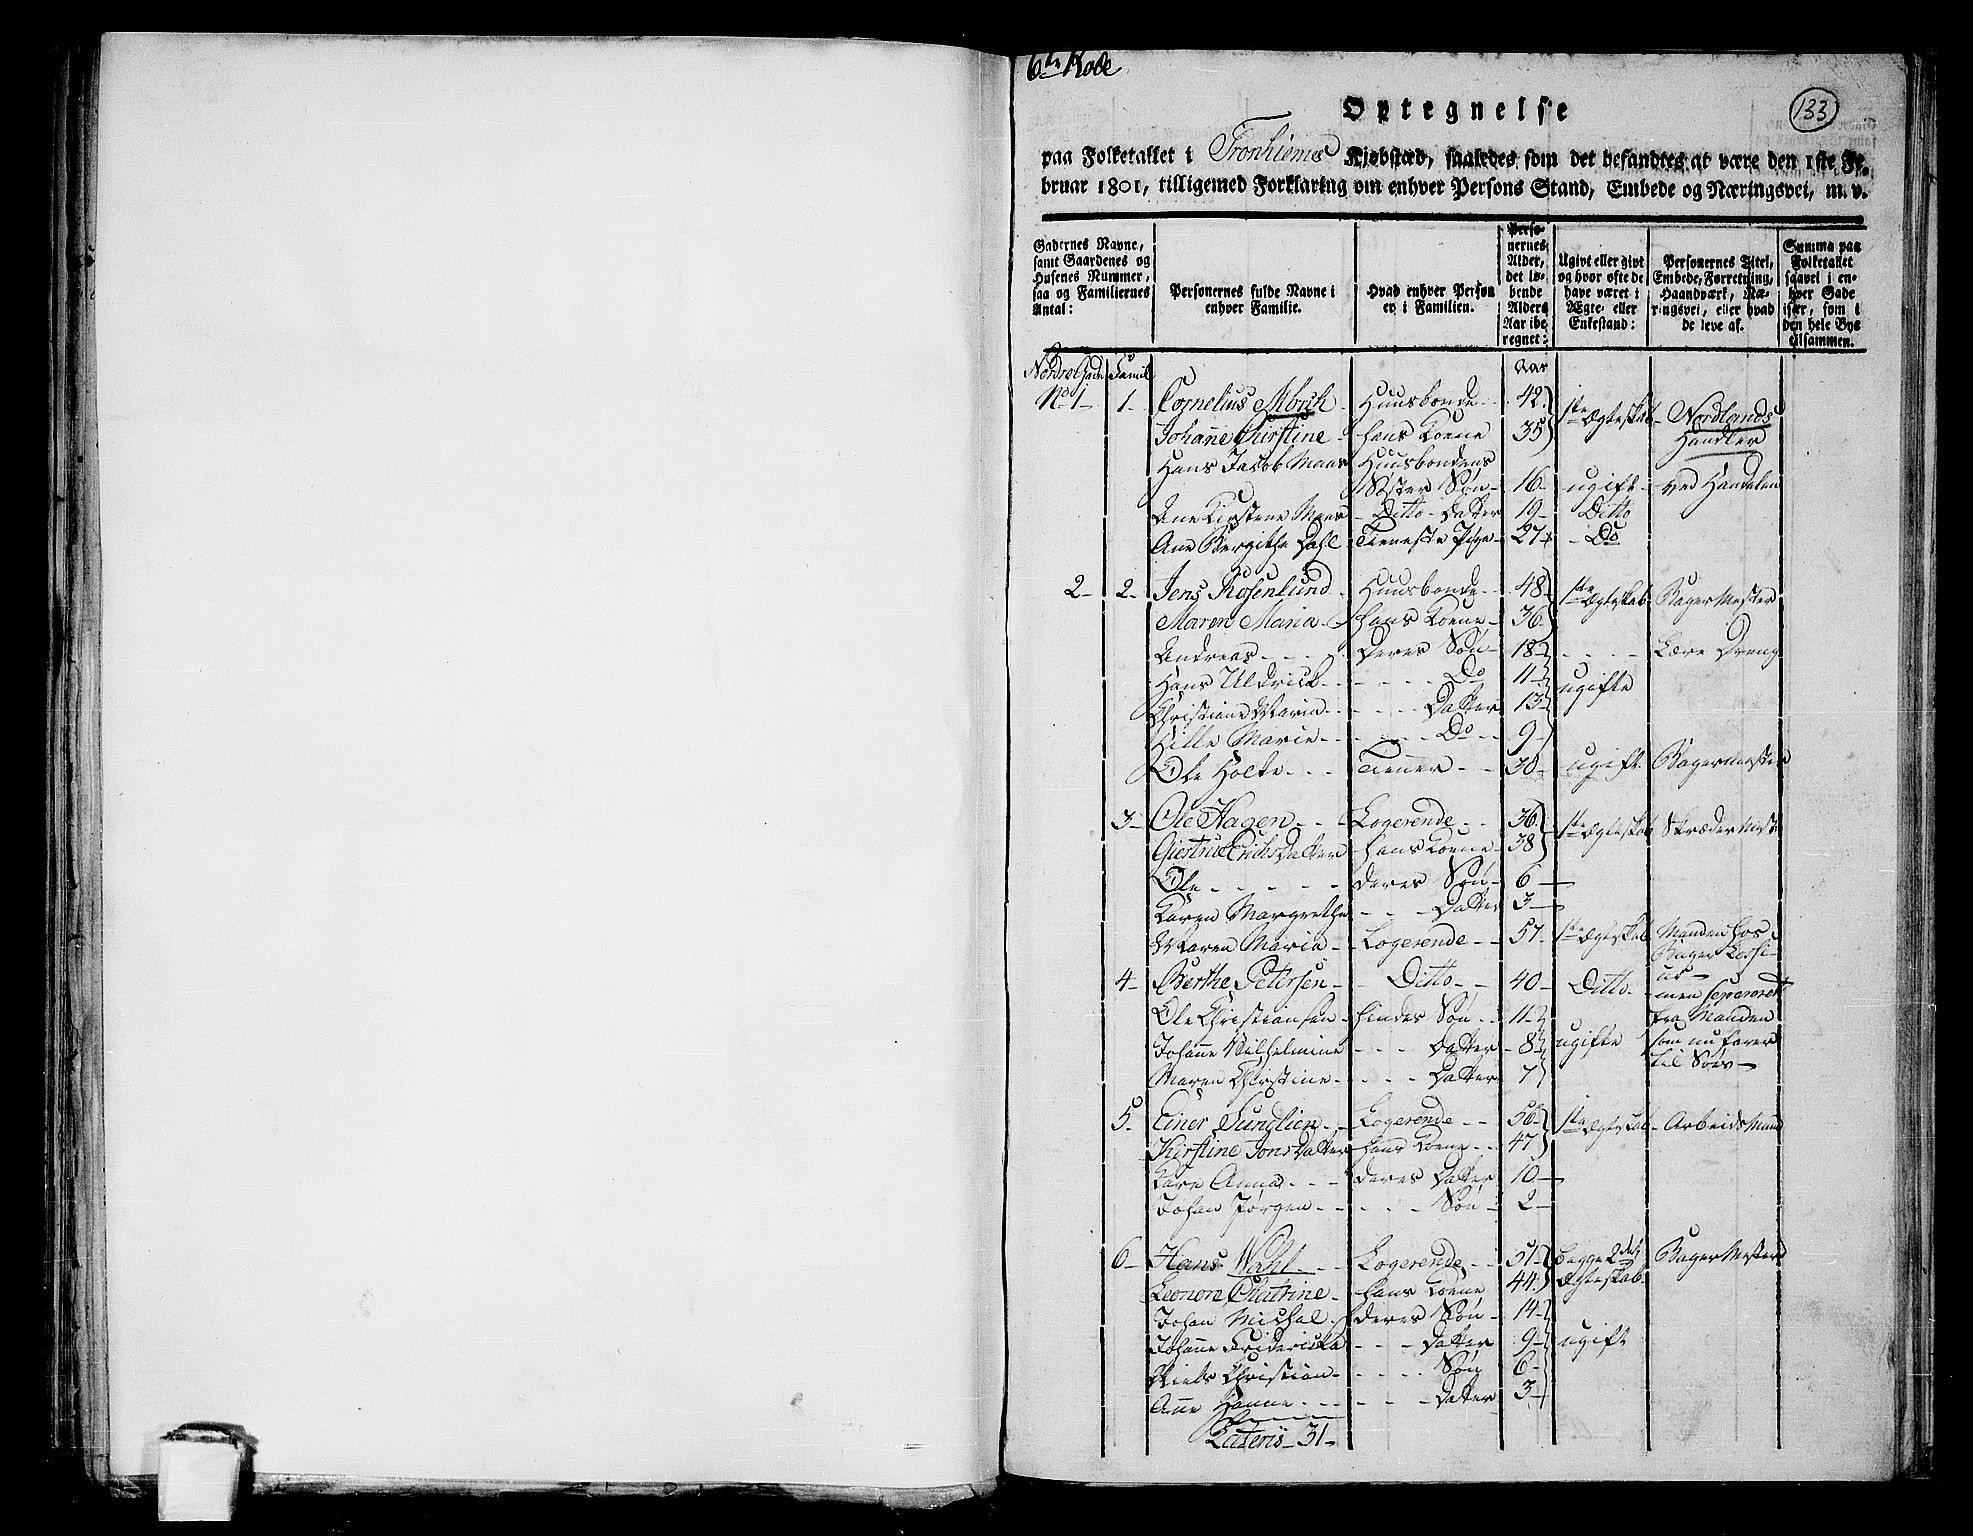 6te Rode
133
Optegnelse
paa Folketallet i Tronhiems Kiøbstæd, saaledes som det befandtes at være den 1ste Fe-
bruar 1801, tilligemed Forklaring om enhver Persons Stand, Embede og Næringsvei, m. v.
Gadernes Navne, samt Gaardenes og Husenes Nummer, saa og Familiernes Antal:
Personernes fulde Navne i enhver Familie.
Hvad enhver Person er i Familien.
Personernes Alder, det løbende Alders Aar iberegnet:
Ugivt eller givt og hvor ofte de have været i Ægte- eller Enkestand:
Personernes Titel, Embede, Forretning, Haandværk, Næringsvei, eller hvad de leve af.
Summa paa Folketallet saavel i enhver Gade især, som i den hele Bye tilsammen.
Nordre Gade Famil Aar
No 1 1 Cornelius Morch Huusbonde 42 1ste Ægteskab Nordlands
Johanne Kirstine hans Koene 35 Handler
Hans Jacob Maar Huusbondens
Søster Søn 16 ugift ved Handelen
Ane Kirstene Maar Ditto Datter 19 Ditto
Ane Bergithe Dahl Tieneste Pige 27 Do
2 2 Jens Rosenlund Huusbonde 48 1ste Ægteskab Bager Mester
Maren Maria hans Koene 36
Andreas Deres Søn 18 Lære Dreng
Hans Uldrich Do 11 ugifte
Christiane Maria Datter 13
Hille Marie Do 9
Ole Holte Tiener 30 ugift Bagermester
3 Ole Hagen Logerende 36 1ste Ægteskab Skræder Mest
Giertrud Erichs Datter hans Koene 38
Ole deres Søn 6
Karen Margrethe Datter 3
Maren Maria Logerende 57 1ste Ægteskab Manden hos
Bager
4 Berthe Petersen Ditto 40 Ditto
men sepereret
Ole Christiansen hindes Søn 11 fra Manden
Johanne Wilhelmine Datter 8 ugifte som nu farer
Maren Christine Datter 7 til Søes
5 Einer Sundlien Logerende 56 1ste Ægteskab Arbeids Mand
Kirstine Jons Datter hans Koene 47
Kare Anna deres Datter 10
Johan Jørgen Søn 2
6 Hans Wahl Logerende 51 begge 2det Bager Mester
Leonore Catrine hans Koene 44 Ægteskab
Johan Michal deres Søn 14
Johanne Friderischa Datter 9 ugift
Niels Christian Søn 6
Ane Hanne Datter 3
Lateris 31